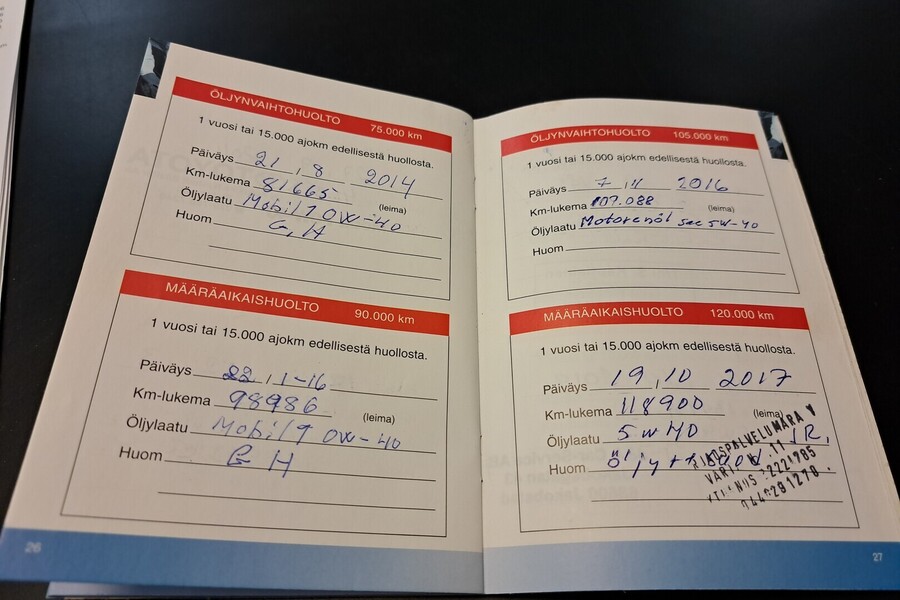 ÖLJYNVAIHTOHUOLTO 75.000 km
1 vuosi tai 15.000 ajokm edellisestä huollosta.
Päiväys 21 , 8 2014
Km-lukema 81665
(leima)
Öljylaatu Mobil 1 0W-40
Huom G, H
MÄÄRÄAIKAISHUOLTO 90.000 km
1 vuosi tai 15.000 ajokm edellisestä huollosta.
Päiväys 22 , 1-16
Km-lukema 98986
(leima)
Öljylaatu Mobil 1 0W-40
Huom G H
26
ÖLJYNVAIHTOHUOLTO 105.000 km
1 vuosi tai 15.000 ajokm edellisestä huollosta.
Päiväys 7 , 11 2016
Km-lukema 107.088 (leima)
Öljylaatu Motorenöl 5W-40
Huom
MÄÄRÄAIKAISHUOLTO 120.000 km
1 vuosi tai 15.000 ajokm edellisestä huollosta.
Päiväys 19 , 10 2017
Km-lukema 118900 (leima)
Öljylaatu 5W40
Huom öljy +
27